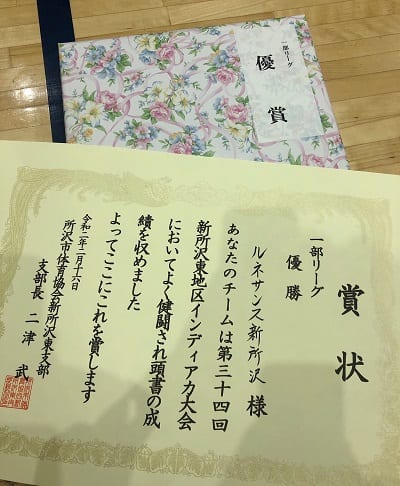 一部リーグ
優賞
賞状
一部リーグ
優勝
ルネサンス新所沢 様
あなたのチームは第三十四回
新所沢東地区インディアカ大会
においてよく健闘され頭書の成
績を収めました
よってここにこれを賞します
令和二年二月十六日
所沢市体育協会新所沢東支部
支部長 二津 武